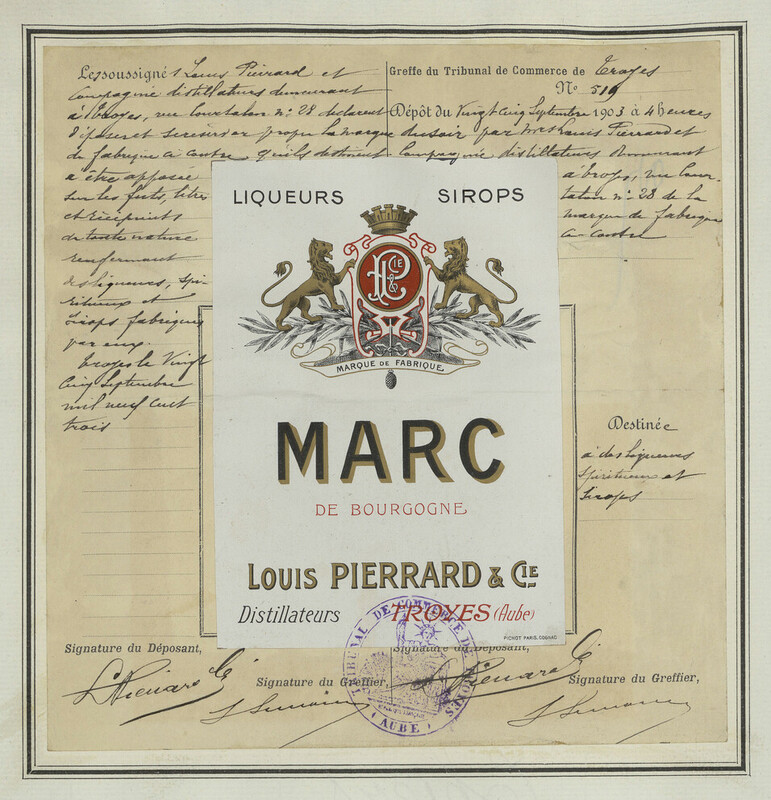 Les soussignés Louis Pierrard et
Compagnie distillateurs demeurant
à Troyes, rue Courtalon n° 28 déclarent
déposer et
de fabrique ci contre qu'ils destinent
à être apposée
sur les fûts, litres
et récipients
de toute nature
renfermant
des liqueurs, spi-
ritueux et
sirops fabriqués
par eux.
Troyes le Vingt
Cinq Septembre
mil neuf cent
trois
Greffe du Tribunal de Commerce de Troyes
N° 519
Dépôt du Vingt Cinq Septembre 1903 à 4 heures
du soir par MM. Louis Pierrard et
Compagnie distillateurs demeurant
à Troyes, rue Cour-
talon n° 28 de la
marque de fabrique
ci-contre
LIQUEURS SIROPS
LP & CIE
MARQUE DE FABRIQUE
MARC
DE BOURGOGNE
LOUIS PIERRARD & CIE
Distillateurs TROYES (Aube)
PICHOT PARIS. COGNAC
Destinée
à des liqueurs
spiritueux et
sirops
Signature du Déposant,
L Pierrard Cie
Signature du Greffier,
Signature du Déposant,
L Pierrard Cie
Signature du Greffier,
TRIBUNAL DE COMMERCE DE TROYES
(AUBE)